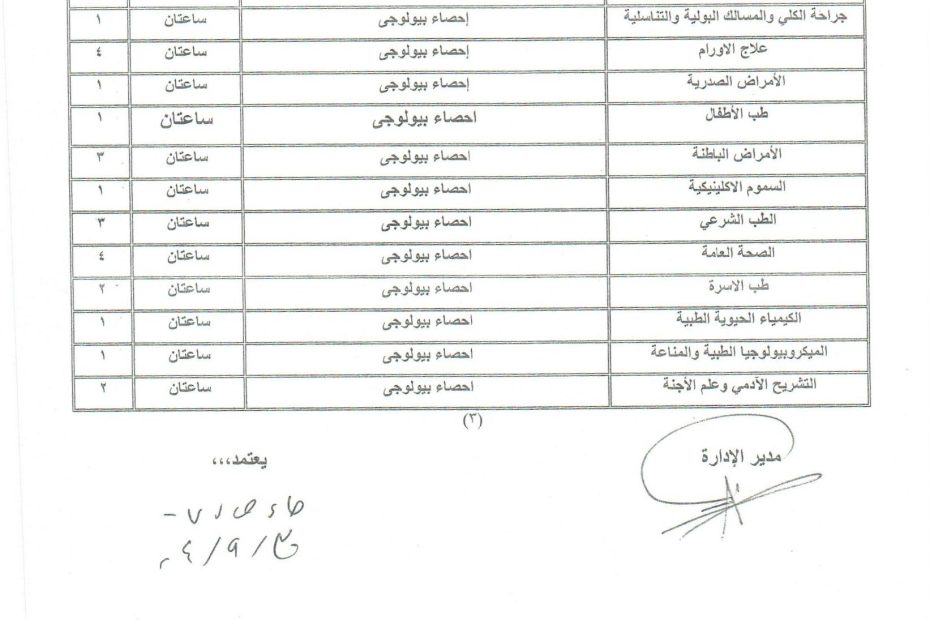 جراحة الكلي والمسالك البولية والتناسلية إحصاء بيولوجى ساعتان ١
علاج الاورام إحصاء بيولوجى ساعتان ٤
الأمراض الصدرية إحصاء بيولوجى ساعتان ١
طب الأطفال احصاء بيولوجى ساعتان ١
الأمراض الباطنة احصاء بيولوجى ساعتان ٣
السموم الاكلينيكية احصاء بيولوجى ساعتان ١
الطب الشرعي احصاء بيولوجى ساعتان ٣
الصحة العامة احصاء بيولوجى ساعتان ٤
طب الاسرة احصاء بيولوجى ساعتان ٢
الكيمياء الحيوية الطبية احصاء بيولوجى ساعتان ١
الميكروبيولوجيا الطبية والمناعة احصاء بيولوجى ساعتان ١
التشريح الآدمي وعلم الأجنة احصاء بيولوجى ساعتان ٢
(٣)
مدير الإدارة يعتمد،،،